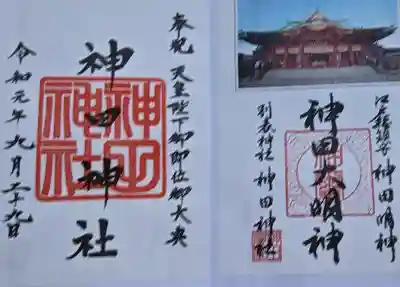 奉祝 天皇陛下御即位御大典
神田神社
神田神社
令和元年九月二十九日
江戸総鎮守 神田明神
神田大明神
別表神社 神田神社